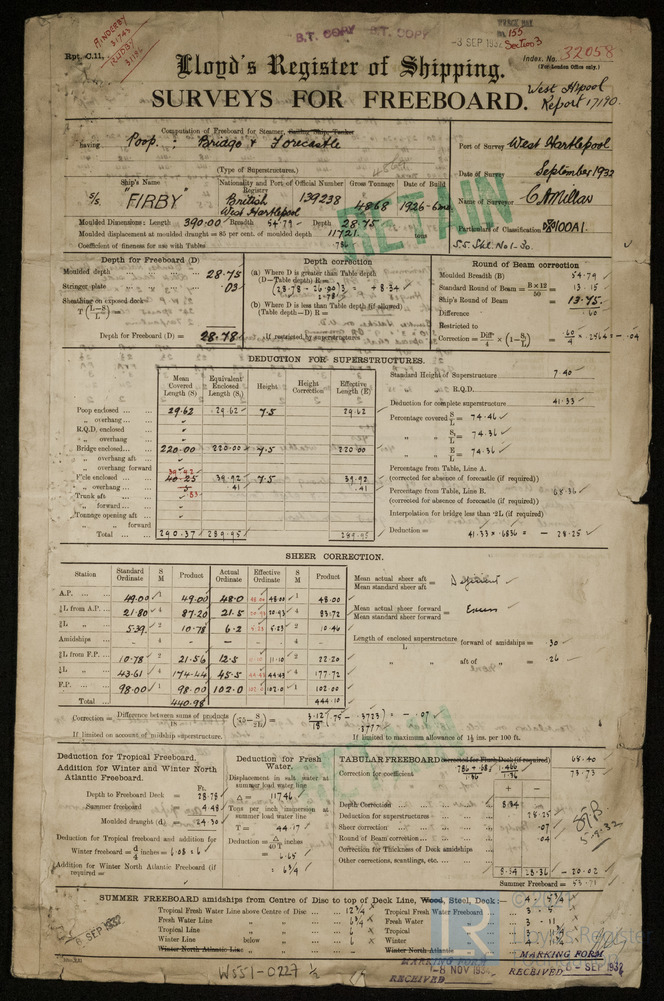 B.T. COPY B.T. COPY
WRECK BOX
No. 155
Section 3
-3 SEP 1932
Rpt. C.11.
AINDERBY
31743
RUDBY
31196
Index. No. 32058
(For London Office only.)
Lloyd's Register of Shipping.
West Hpool
Report 17190.
SURVEYS FOR FREEBOARD.
Computation of Freeboard for Steamer, Sailing Ship, Tanker
having Poop, Bridge & Forecastle
(Type of Superstructures.)
Port of Survey West Hartlepool
Date of Survey September 1932
Name of Surveyor C A Millar
Particulars of Classification 100A1.
SS. Shl. No 1-30.
Ship's Name Nationality and Port of Registry Official Number Gross Tonnage Date of Build
S/S "FIRBY" British West Hartlepool 139238 4868 1926-6mo
RETAIN
Moulded Dimensions: Length 390.00 Breadth 54.79 Depth 28.75
Moulded displacement at moulded draught = 85 per cent. of moulded depth 11721 tons
Coefficient of fineness for use with Tables .786
Depth for Freeboard (D)
Moulded depth 28.75
Stringer plate .03
Sheathing on exposed deck
T (L-S/L) =
Depth for Freeboard (D) = 28.78
Depth correction
(a) Where D is greater than Table depth
(D-Table depth) R =
(28.78 - 26.00) 3 = + 8.34
2.78
(b) Where D is less than Table depth (if allowed)
(Table depth-D) R =
If restricted by superstructures
Round of Beam correction
Moulded Breadth (B) 54.79
Standard Round of Beam = B×12/50 = 13.15
Ship's Round of Beam = 13.75.
Difference .60
Restricted to
Correction = Diff/4 × (1-S/L) = .60/4 × .2564 = - .04
DEDUCTION FOR SUPERSTRUCTURES.
Mean Covered Length (S) Equivalent Enclosed Length (S₁) Height Height Correction Effective Length (E)
Poop enclosed 29.62 29.62 7.5 29.62
„ overhang
R.Q.D. enclosed
„ overhang
Bridge enclosed 220.00 220.00 7.5 220.00
„ overhang aft
„ overhang forward
F'cle enclosed 39.92 40.25 39.92 7.5 39.92
„ overhang .5 .83 .41 .41
Trunk aft
„ forward
Tonnage opening aft
„ forward
Total 290.37 289.95 289.95
Standard Height of Superstructure 7.40
„ „ R.Q.D.
Deduction for complete superstructure 41.33
Percentage covered S/L = 74.46
„ „ S₁/L = 74.36
„ „ E/L = 74.36
Percentage from Table, Line A.
(corrected for absence of forecastle (if required))
Percentage from Table, Line B. 68.36
(corrected for absence of forecastle (if required))
Interpolation for bridge less than ·2L (if required)
Deduction = 41.33 × .6836 = - 28.25
SHEER CORRECTION.
Station Standard Ordinate S M Product Actual Ordinate Effective Ordinate S M Product
A.P. 49.00 1 49.00 48.0 48.00 1 48.00
⅙L from A.P. 21.80 4 87.20 21.5 20.93 4 83.72
⅓L „ 5.39 2 10.78 6.2 5.23 2 10.46
Amidships 4 - - 4 -
⅓L from F.P. 10.78 2 21.56 12.5 11.10 2 22.20
⅙L „ 43.61 4 174.44 45.5 44.43 4 177.72
F.P. 98.00 1 98.00 102.0 102.0 1 102.00
Total 440.98 444.10
Mean actual sheer aft / Mean standard sheer aft = Deficient
Mean actual sheer forward / Mean standard sheer forward = Excess
Length of enclosed superstructure / L forward of amidships = .30
„ „ aft of „ = .26
Correction = Difference between sums of products / 18 (.75 - S/2L) = 3.12/18 (.75 - .3723) = - .07
If limited on account of midship superstructure.
If limited to maximum allowance of 1½ ins. per 100 ft.
RETAIN
Deduction for Tropical Freeboard.
Addition for Winter and Winter North Atlantic Freeboard.
Ft.
Depth to Freeboard Deck = 28.78
Summer freeboard = 4.48
Moulded draught (d) = 24.30
Deduction for Tropical freeboard and addition for
Winter freeboard = d/4 inches = 6.08 = 6
Addition for Winter North Atlantic Freeboard (if required) =
Deduction for Fresh Water.
Displacement in salt water at summer load water line
Δ = 11746
Tons per inch immersion at summer load water line
T = 44.17
Deduction = Δ/40T inches
= 6.65
= 6¾
TABULAR FREEBOARD corrected for Flush Deck (if required) 68.40
Correction for coefficient .786 + .68 / 1.36 = 1.466 / 1.36 73.73
+ -
Depth Correction 8.34
Deduction for superstructures 28.25
Sheer correction .07
Round of Beam correction .04
Correction for Thickness of Deck amidships
Other corrections, scantlings, etc.
8.34 28.36 - 20.02
Summer Freeboard = 53.71
5.9.32
SUMMER FREEBOARD amidships from Centre of Disc to top of Deck Line, Wood, Steel, Deck:- 4 - 5¾
Tropical Fresh Water Line above Centre of Disc 12¾ Tropical Fresh Water Freeboard 3 - 5
Fresh Water Line „ „ 6¾ Fresh Water „ 3 - 11
Tropical Line „ „ 6 Tropical „ 3 - 11¾
Winter Line below „ 6 Winter „ 4 - 11¾
Winter North Atlantic Line „ Winter North Atlantic „
8 SEP 1932
W551-0227 ½
MARKING FORM
RECEIVED
-8 NOV 1934
MARKING FORM
RECEIVED 8 - SEP 1932
© 2021
LR
Lloyd's Register